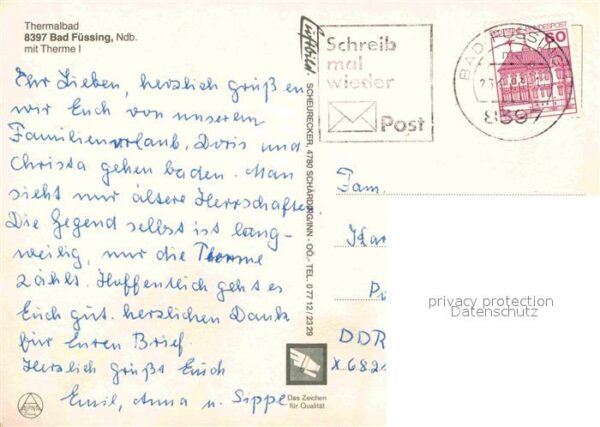 Thermalbad
8397 Bad Füssing, Ndb.
mit Therme I
Ihr Lieben, herzlich grüßen
wir Euch von unserem
Familienurlaub. Doris und
Christa gehen baden. Man
sieht nur ältere Herrschaften
Die Gegend selbst ist lang-
weilig, nur die Therme
zählt. Hoffentlich geht es
Euch gut. herzlichen Dank
für Euren Brief.
Herzlich grüßt Euch
Emil, Anna u. Sippe
Luftbild SCHEURECKER, 4780 SCHÄRDING/INN - OÖ.- TEL. 0 77 12 / 23 29
Das Zeichen
für Qualität
Schreib
mal
wieder
Post
BAD FÜSSING
8397
BUNDESPOST
60
Fam.
DDR
privacy protection
Datenschutz